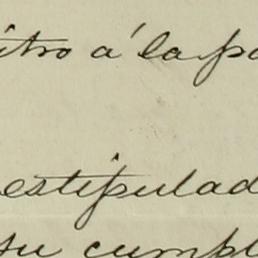 itro á la pa
estipulad
su cumpl